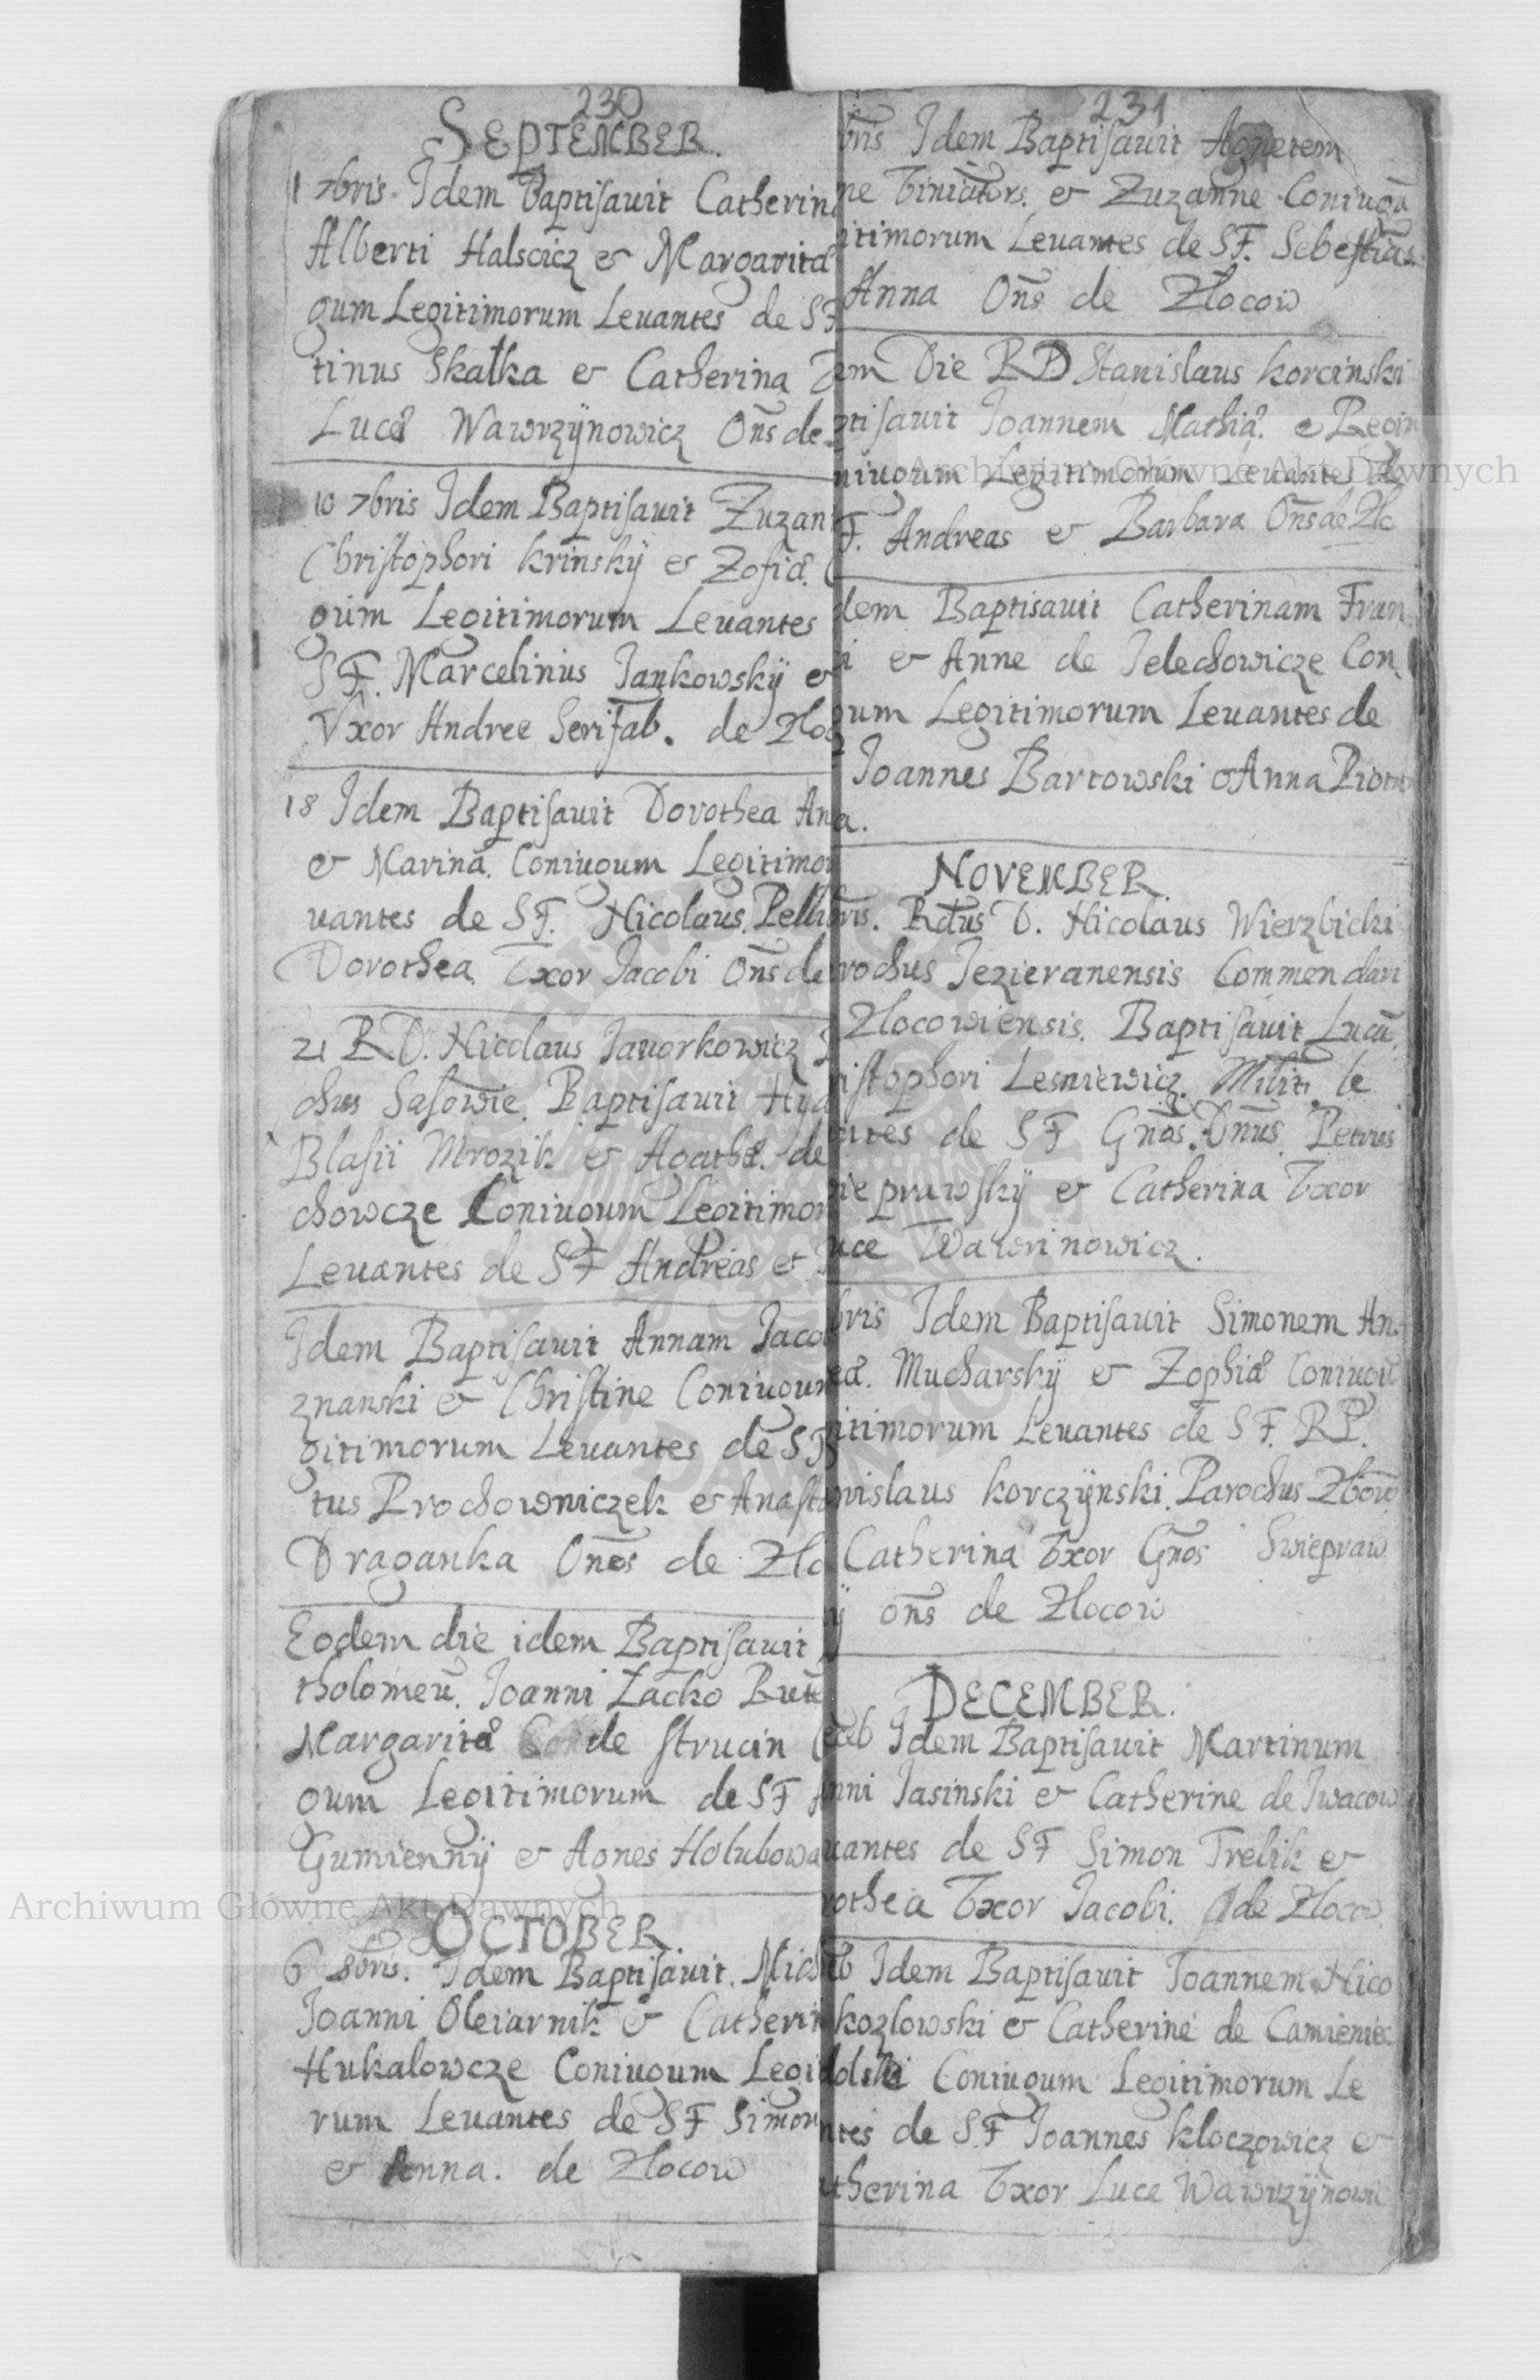 230
SEPTEMBER.
1 7bris. Idem Baptisauit Catherin
Alberti Halscicz & Margarita
gum Legitimorum Leuantes de SF
tinus Skalka & Catherina
Lucæ Wawrzÿnowicz Oñs de
10 7bris Idem Baptisauit Zuzan
Christophori krinskÿ & Zofiæ.
gum Legitimorum Leuantes
SF. Marcelinius Jankowskÿ &
Vxor Andree Serifab. de Zloc
18 Idem Baptisauit Dorothea An
& Marina. Coniugum Legitimor
uantes de SF. Nicolaus. Pelli
Dorothea Vxor Jacobi Oñs de
21 RD. Nicolaus Jauorkowicz
chus Sasowie. Baptisauit Hya
Blasii Mrozik & Agathæ. de
chowcze Coniugum Legitimor
Leuantes de SF Andreas et
Idem Baptisauit Annam Jaco
znanski & Christine Coniugum
gitimorum Leuantes de SF
tus Prochowniczek & Anasta
Draganka Oñes de Zlo
Eodem die idem Baptisauit
tholomeũ. Joanni Zacko
Margaritæ de strucin
gum Legitimorum de SF
Gumiennÿ & Agnes Holubowa
OCTOBER.
6 8bris. Idem Baptisauit. Mich
Joanni Oleiarnik & Catheri
Hukalowcze Coniugum Legi
rum Leuantes de SF Simon
& Anna. de Zlocow
231
bris Idem Baptisauit Agnetem
ne & Zuzanne Coniugũ
itimorum Leuantes de SF. Sebestias
Anna Oñs de Zlocow
em Die RD Stanislaus korcinski
ptisauit Joannem Mathiæ. & Regin
niugum Legitimorum Leuantes de
F. Andreas & Barbara Oñs de Zlo
dem Baptisauit Catherinam Fran
i & Anne de Jelechowicze Con
gum Legitimorum Leuantes de
Joannes Bartowski & Anna Piotr
a.
NOVEMBER.
bris. Rdus D. Nicolaus Wierzbicki
rochus Jezieranensis Commendari
Zlocowiensis. Baptisauit Lucã
ristophori Lesniewicz. Milit. le
antes de SF Gnõs. Dnũs. Petrus
ieprawskÿ & Catherina Vxor
uce Wawrinowicz.
bris Idem Baptisauit Simonem An
eæ. Mucharskÿ & Zophiæ Coniugũ
itimorum Leuantes de SF. RP.
nislaus korczÿnski. Parochus Zborow
Catherina Vxor Gnõs Swiepraw
ÿ oñs de Zlocow
DECEMBER.
Idem Baptisauit Martinum
nni Jasinski & Catherine de Iwacow
uantes de SF Simon Trelik &
rothea Vxor Jacobi. de Zlocow
Idem Baptisauit Joannem Nico
kozlowski & Catherine de Camieniec
dolski Coniugum Legitimorum Le
ntes de SF Joannes kloczowicz &
therina Vxor Luce Wawrzÿnowic
Archiwum Główne Akt Dawnych
Archiwum Główne Akt Dawnych